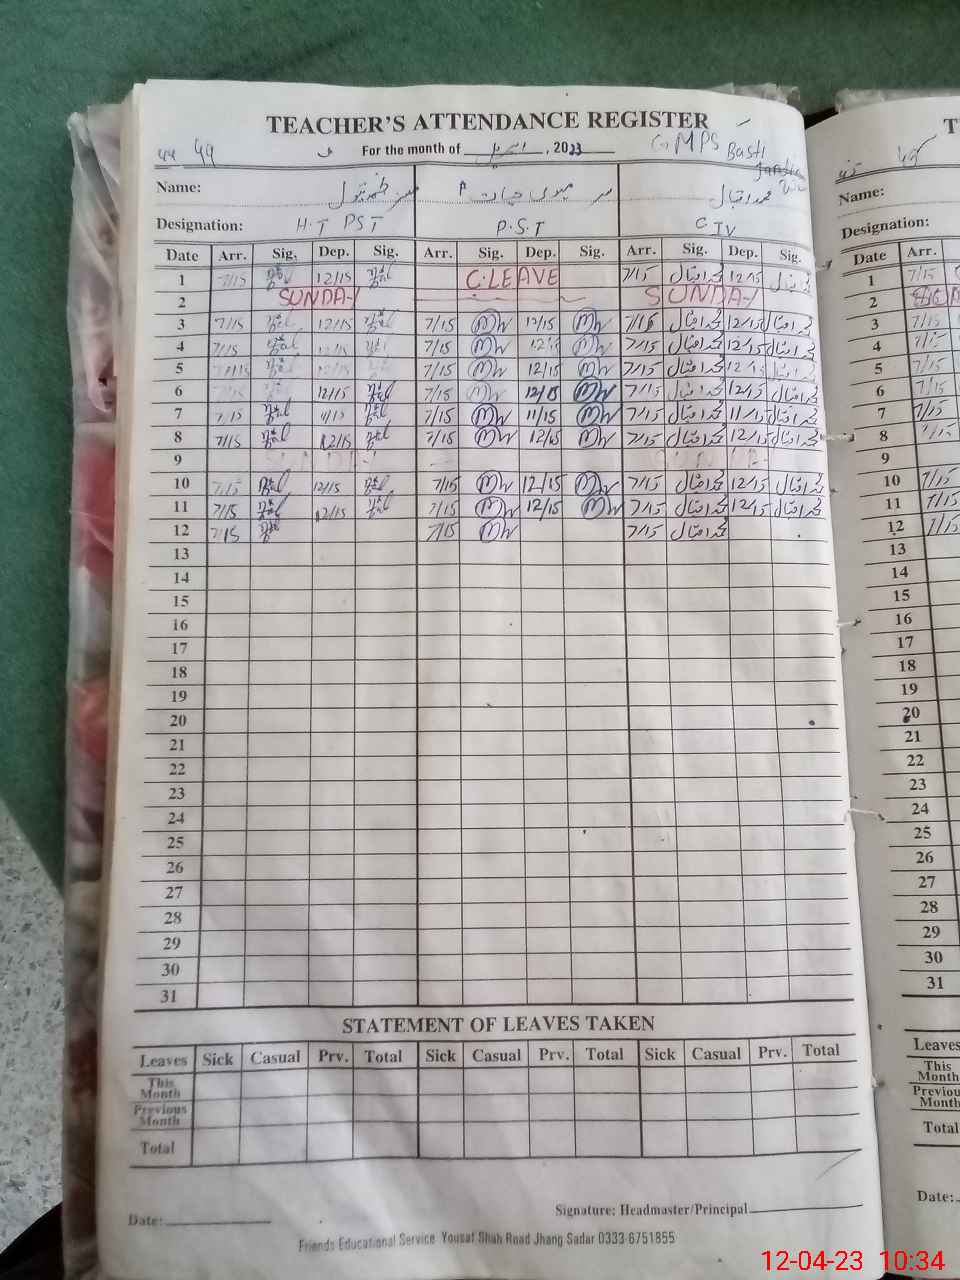 TEACHER'S ATTENDANCE REGISTER
44 49 For the month of اپریل, 2023 G MPS Basti
Name: محمد اقبال
Designation: H.T PST P.S.T C IV
Date Arr. Sig. Dep. Sig. Arr. Sig. Dep. Sig. Arr. Sig. Dep. Sig.
1 7/15 12/15 C.LEAVE 7/15 محمد اقبال 12/15 محمد اقبال
2 SUNDAY SUNDAY
3 7/15 12/15 7/15 MW 12/15 MW 7/15 محمد اقبال 12/15 محمد اقبال
4 7/15 12/15 7/15 MW 12/15 MW 7/15 محمد اقبال 12/15 محمد اقبال
5 7/15 12/15 7/15 MW 12/15 MW 7/15 محمد اقبال 12/15 محمد اقبال
6 12/15 7/15 MW 12/15 MW 7/15 محمد اقبال 12/15 محمد اقبال
7 7/15 11/15 7/15 MW 11/15 MW 7/15 محمد اقبال 11/15 محمد اقبال
8 7/15 12/15 7/15 MW 12/15 MW 7/15 محمد اقبال 12/15 محمد اقبال
9 SUNDAY SUNDAY
10 7/15 12/15 7/15 MW 12/15 MW 7/15 محمد اقبال 12/15 محمد اقبال
11 7/15 12/15 7/15 MW 12/15 MW 7/15 محمد اقبال 12/15 محمد اقبال
12 7/15 7/15 MW 7/15 محمد اقبال
13
14
15
16
17
18
19
20
21
22
23
24
25
26
27
28
29
30
31
STATEMENT OF LEAVES TAKEN
Leaves Sick Casual Prv. Total Sick Casual Prv. Total Sick Casual Prv. Total
This Month
Previous Month
Total
Date: Signature: Headmaster/Principal
Friends Educational Service Yousaf Shah Road Jhang Sadar 0333-6751855
T
45
Name:
Designation:
Date Arr.
1 7/15
2
3 7/15
4 7/15
5 7/15
6 7/15
7 7/15
8 7/15
9
10 7/15
11 7/15
12 7/15
13
14
15
16
17
18
19
20
21
22
23
24
25
26
27
28
29
30
31
Leaves
This Month
Previou Month
Total
Date:
12-04-23 10:34